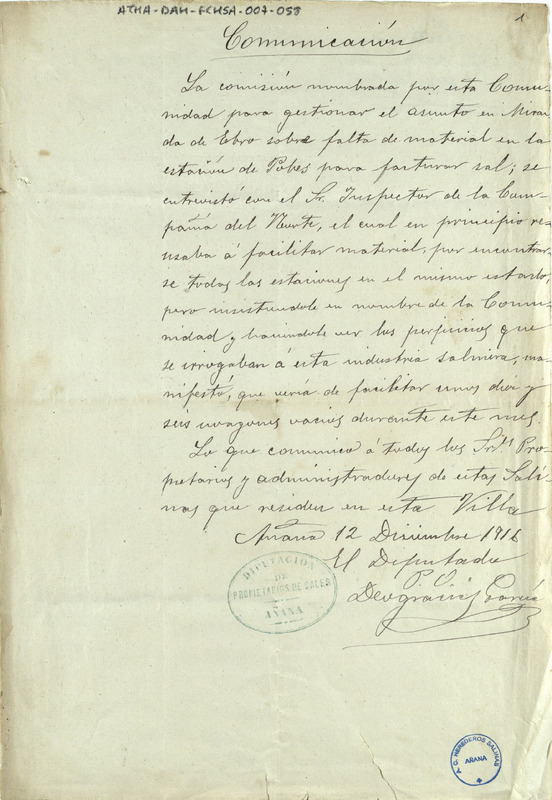 ATHA-DAH-FCHSA-007-058
1
Comunicación
La comisión nombrada por esta Comu-
nidad para gestionar el asunto en Miran-
da de Ebro sobre falta de material en la
estación de Pobes para facturar sal; se
entrevistó con el Sr. Inspector de la Com-
pañia del Norte, el cual en principio re-
usaba á facilitar material, por encontrar-
se todas las estaciones en el mismo estado,
pero insistiendole en nombre de la Comu-
nidad y haciendole ver los perjuicios que
se irrogaban á esta industria salinera, ma-
nifestó, que vería de facilitar unos diez y
seis wagones vacios durante este mes.
Lo que comunico á todos los Sres Pro-
pietarios y administradores de estas Sali-
nas que residen en esta Villa
Añana 12 Diciembre 1916
El Diputado
P. O.
Deogracias García
DIPUTACIÓN
DE
PROPIETARIOS DE SALES
AÑANA
A. G. HEREDEROS SALINAS
AÑANA